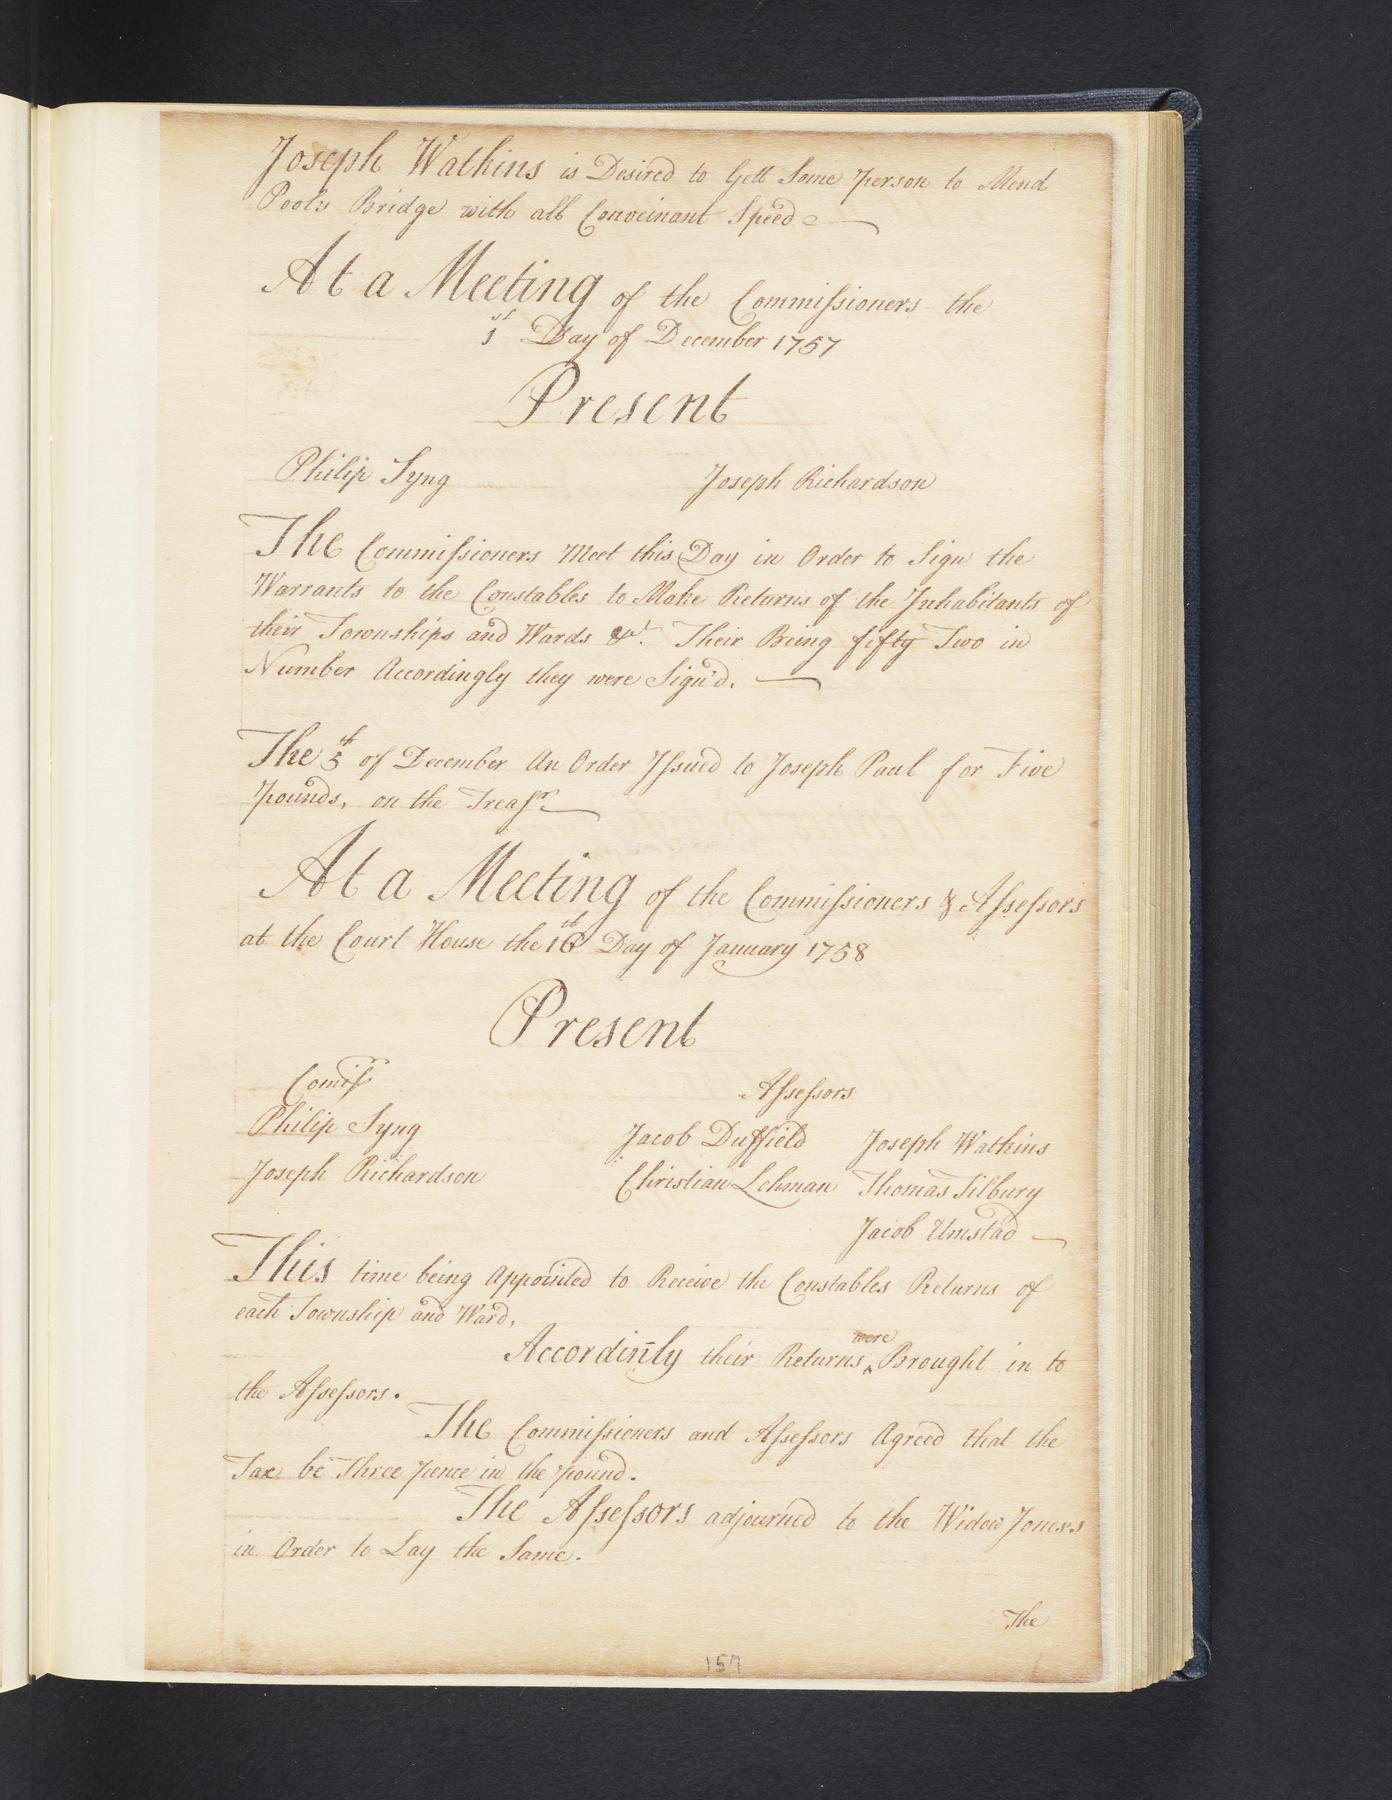 Joseph Watkins is Desired to Gett Some person to Mend
Pool's Bridge with all Convcinant Speed
At a Meeting of the Commissioners the
1st Day of December 1757
Present
Philip Syng Joseph Richardson
The Commissioners Meet this Day in Order to Sign the
Warrants to the Constables to Make Returns of the Inhabitants of
their Townships and Wards &ca. Their Being fifty Two in
Number Accordingly they were Sign'd.
The 5th of December An Order Issued to Joseph Paul for Five
pounds, on the Treasr
At a Meeting of the Commissioners & Assessors
at the Court House the 16th Day of January 1758
Present
Comissrs Assessors
Philip Syng Jacob Duffield Joseph Watkins
Joseph Richardson Christian Lehman Thomas Tilbury
Jacob Umstad
This time being Appointed to Receive the Constables Returns of
each Township and Ward,
Accordinly their Returns were Brought in to
the Assessors.
The Commissioners and Assessors Agreed that the
Tax be Three pence in the pound.
The Assessors adjourned to the Widow Jones's
in Order to Lay the Same.
The
157